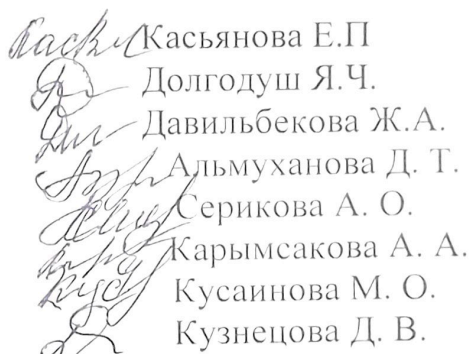 Касьянова Е.П
Долгодуш Я.Ч.
Давильбекова Ж.А.
Альмуханова Д. Т.
Серикова А. О.
Карымсакова А. А.
Кусаинова М. О.
Кузнецова Д. В.